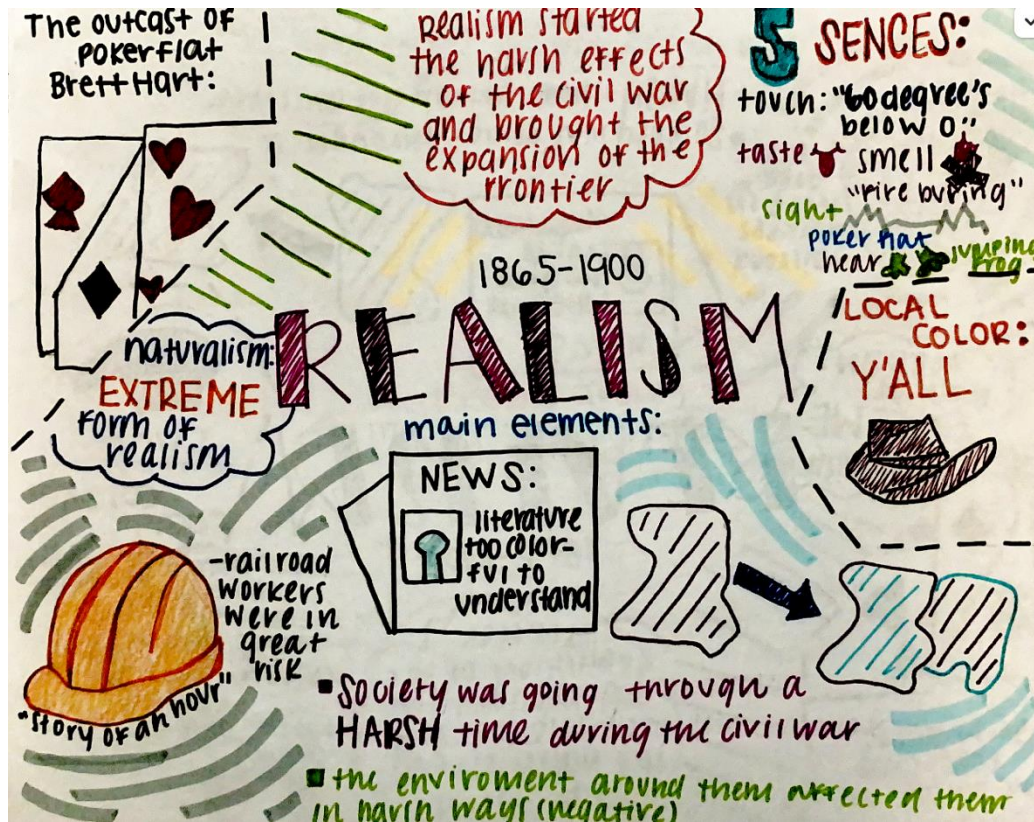 The outcast of
pokerflat
Brett Hart:
Realism started
the harsh effects
of the civil war
and brought the
expansion of the
frontier
5 SENCES:
touch: "60 degree's
below 0"
taste smell
"fire buring"
sight
poker flat
hear jumping
frog
1865-1900
REALISM
naturalism:
EXTREME
form of
realism
LOCAL
COLOR:
Y'ALL
main elements:
NEWS:
literature
too color-
ful to
understand
-railroad
workers
were in
great
risk
"story of an hour"
Society was going through a
HARSH time during the civil war
the enviroment around them affected them
in harsh ways (negative)